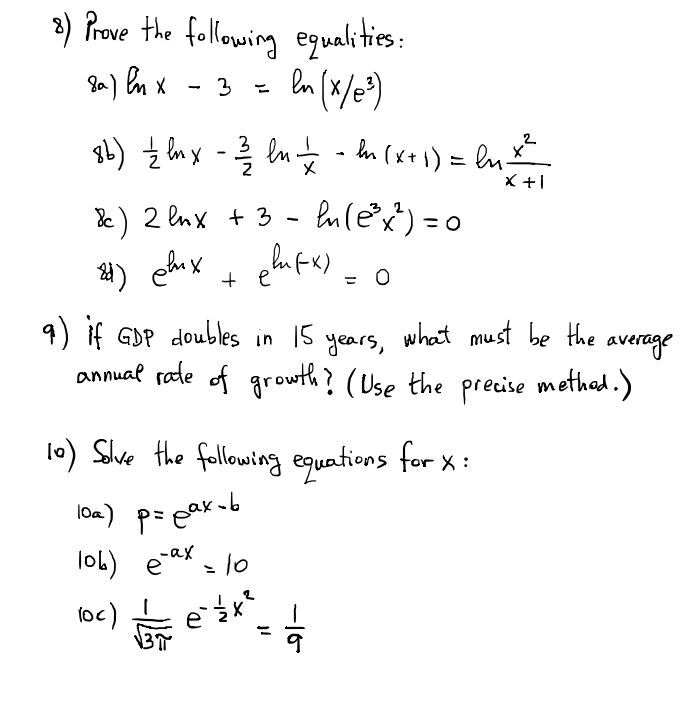 8) Prove the following equalities:
8a) ln x - 3 = ln (x/e³)
8b) ½ ln x - 3/2 ln 1/x - ln (x+1) = ln x²/x+1
8c) 2 ln x + 3 - ln(e³x²) = 0
8d) e^ln x + e^ln(-x) = 0
9) if GDP doubles in 15 years, what must be the average
annual rate of growth? (Use the precise method.)
10) Solve the following equations for x:
10a) p = e^ax-b
10b) e^-ax = 10
10c) 1/√3π e^-½x² = 1/9